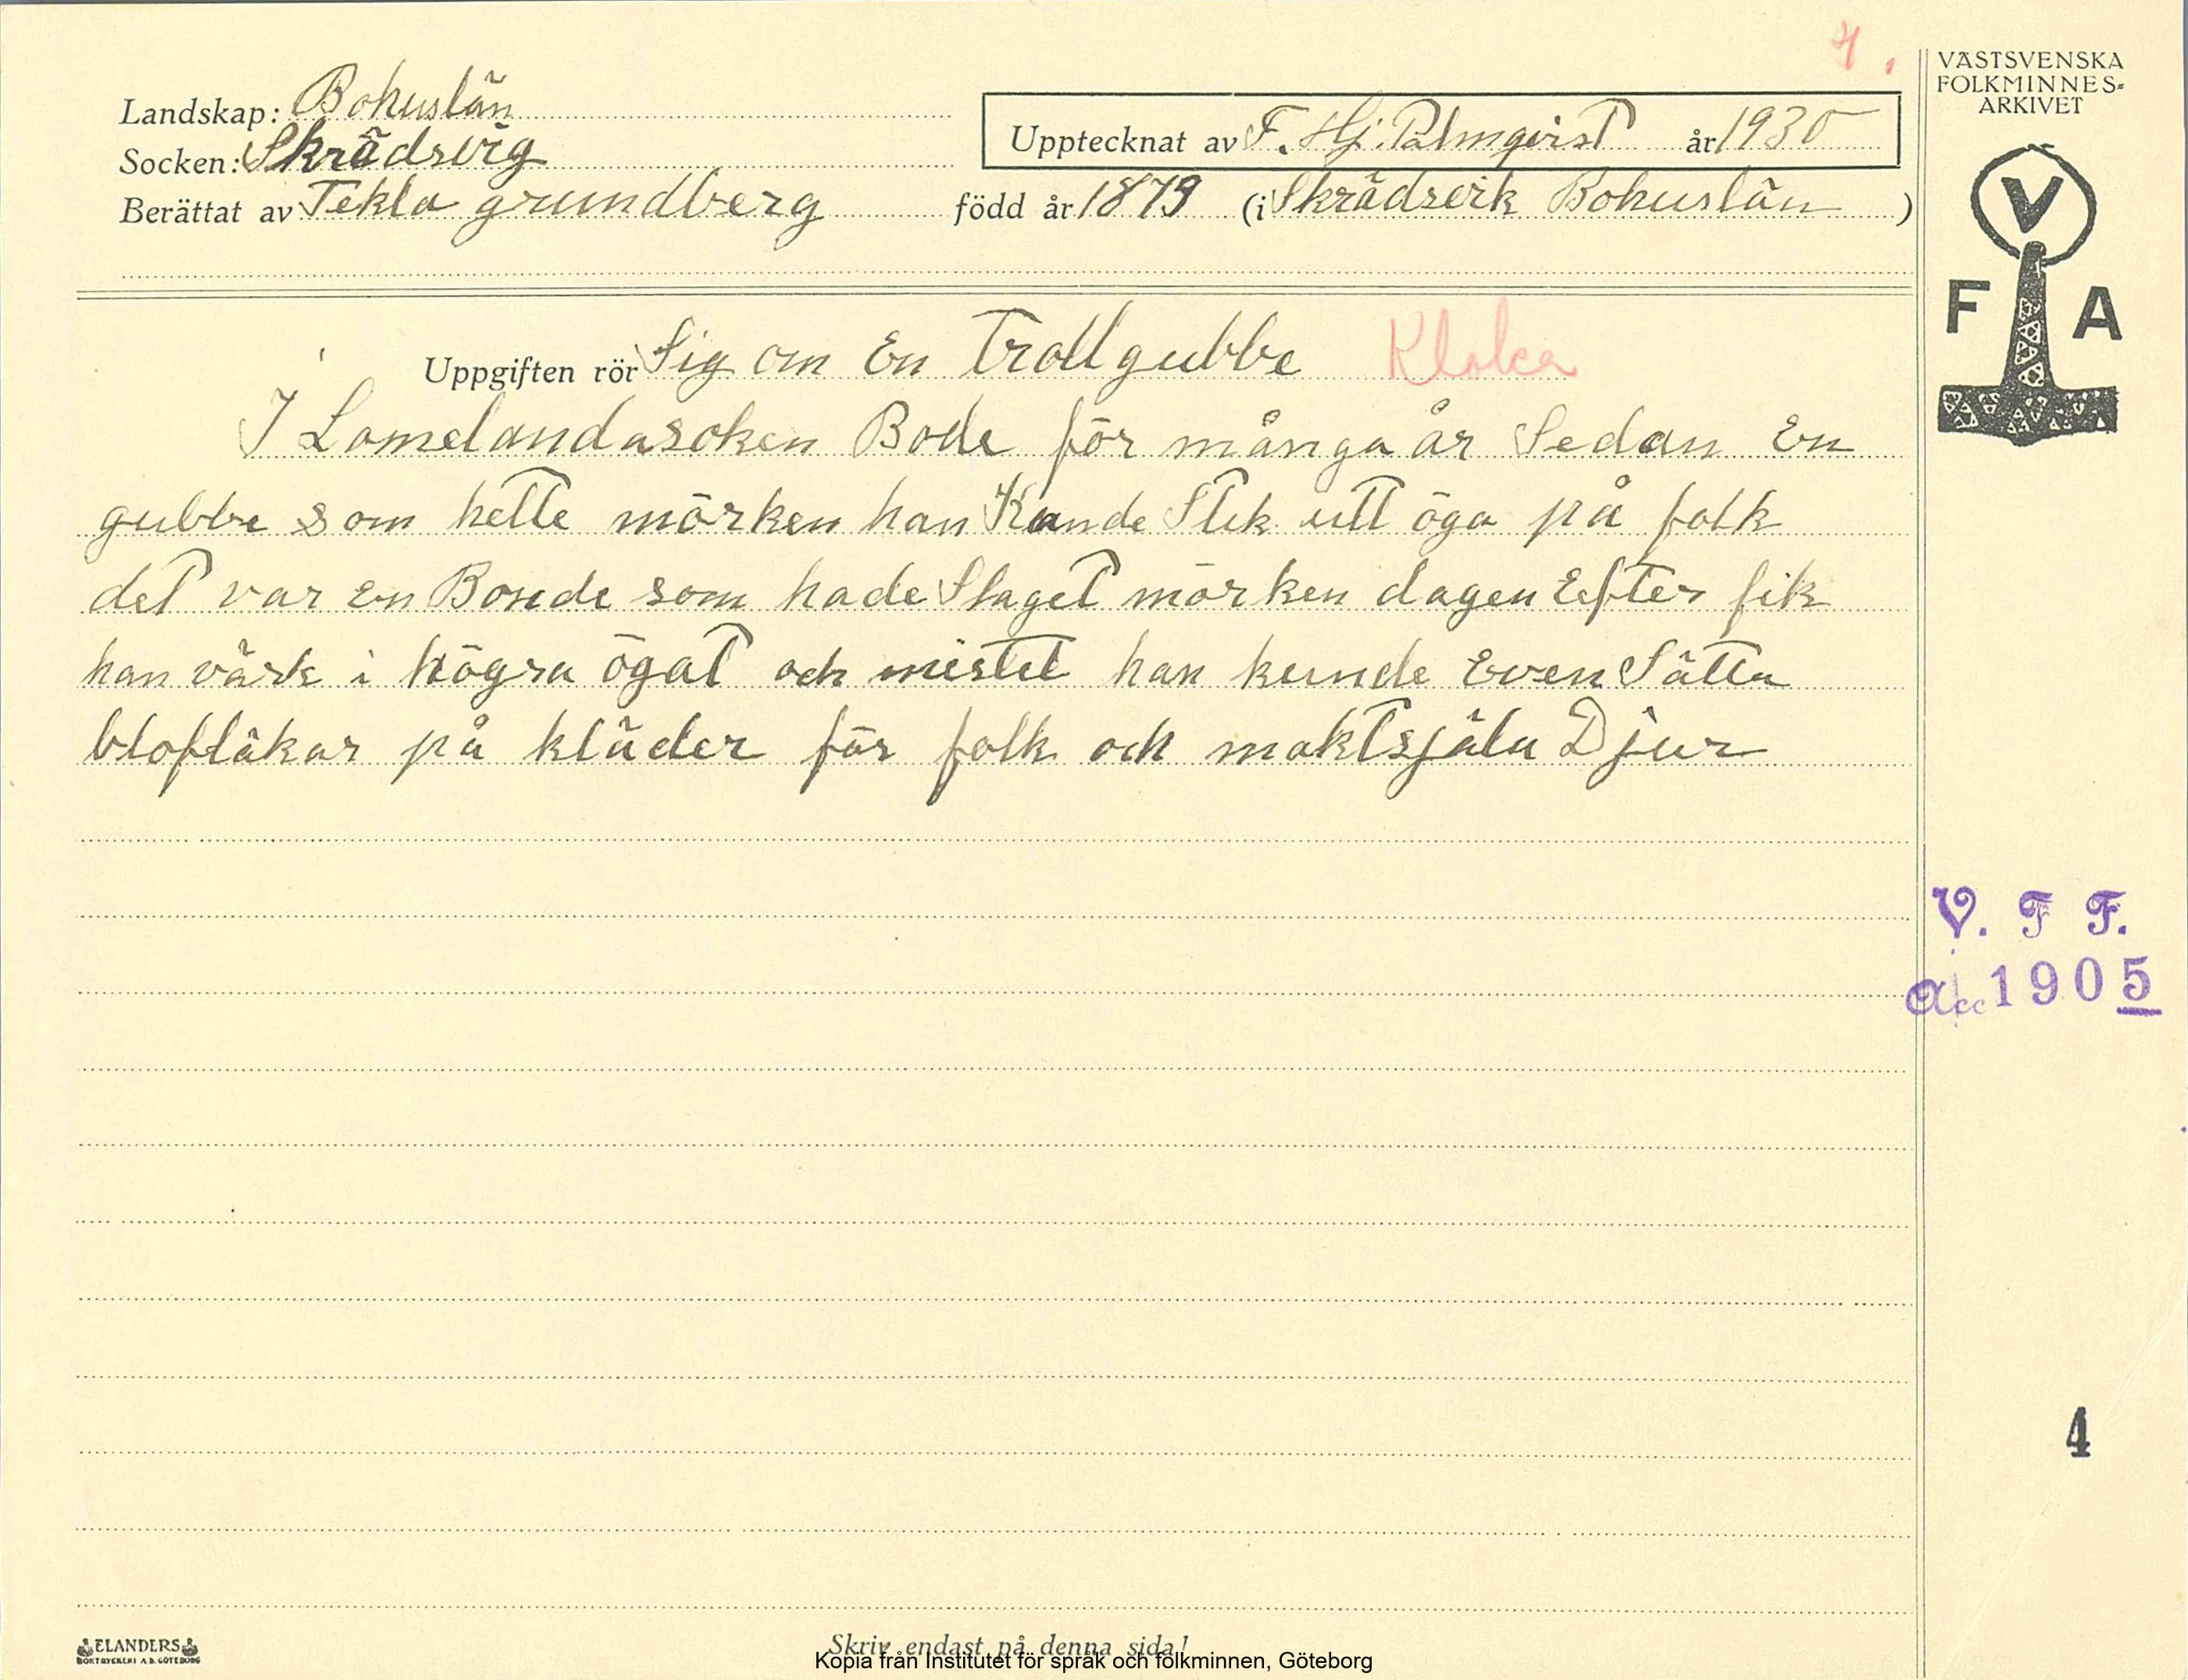 4.
VÄSTSVENSKA
FOLKMINNES-
ARKIVET
Landskap: Bohuslän
Socken: Skrädsvig
Upptecknat av F. Hj. Palmqvist år 1930
Berättat av Tekla grundberg född år 1879 (i Skrädsvik Bohuslän )
V
F A
Uppgiften rör Sig om En Trollgubbe Kloka
I Lomelandasoken Bode för många år Sedan En
gubbe som hette mörken han Kunde Stik utt öga på folk
det var En Bonde som hade Slaget mörken dagen Efter fik
han värk i högra ögat och mistet han kunde Even Sätta
blofläkar på kläder för folk och maktsjäla Djur
V. F F.
Acc 1905
4
ELANDERS
BOKTRYCKERI A.B. GÖTEBORG
Skriv endast på denna sida!
Kopia från Institutet för språk och folkminnen, Göteborg